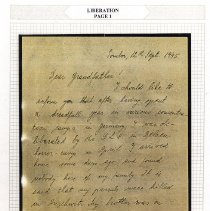 LIBERATION
PAGE 1
London, 12th Sept. 1945
Dear Grandfather!
I should like to
inform you that after having spent
a dreadfull year in various concentra-
tion camps in Germany I was
liberated by the
in April. I arrived
home some days ago and found
nobody here of my family. It is
said that my parents were killed
in Auschwitz. My brother was in